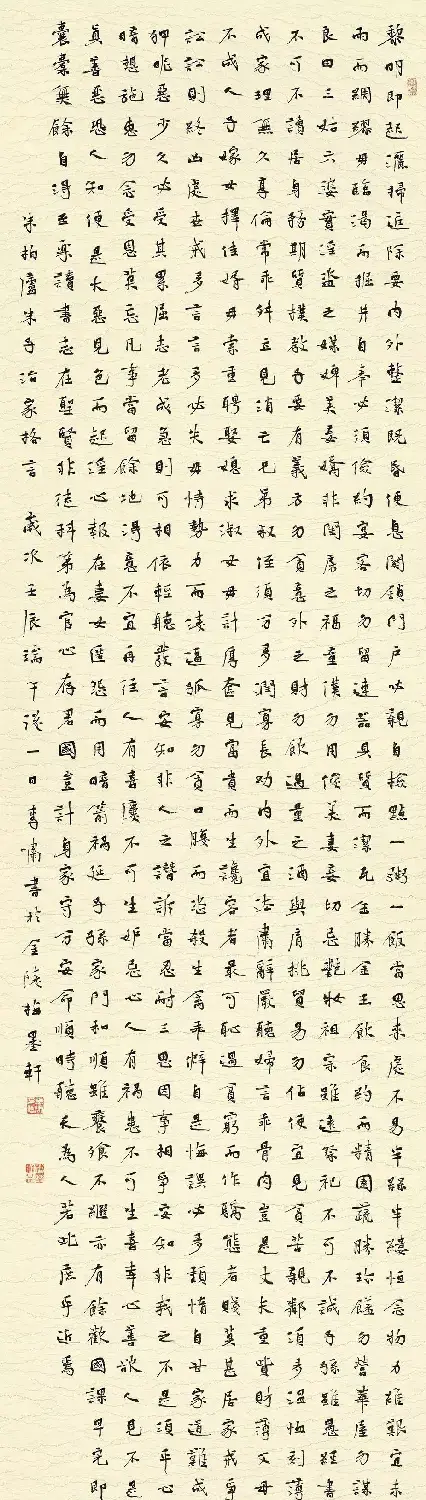 黎明即起灑掃庭除要內外整潔既昏便息關鎖門戶必親自檢點一粥一飯當思來處不易半絲半縷恒念物力維艱宜未
雨而綢繆毋臨渴而掘井自奉必須儉約宴客切勿留連器具質而潔瓦缶勝金玉飲食約而精園蔬勝珍饈勿營華屋勿謀
良田三姑六婆實淫盜之媒婢美妾嬌非閨房之福童僕勿用俊美妻妾切忌艷妝祖宗雖遠祭祀不可不誠子孫雖愚經書
不可不讀居身務期質樸教子要有義方勿貪意外之財勿飲過量之酒與肩挑貿易勿佔便宜見貧苦親鄰須多溫恤刻薄
成家理無久享倫常乖舛立見消亡兄弟叔侄須分多潤寡長幼內外宜法肅辭嚴聽婦言乖骨肉豈是丈夫重貲財薄父母
不成人子嫁女擇佳婿毋索重聘娶媳求淑女毋計厚奩見富貴而生讒容者最可恥遇貧窮而作驕態者賤莫甚居家戒爭
訟訟則終凶處世戒多言言多必失毋恃勢力而淩逼孤寡勿貪口腹而恣殺生禽乖僻自是悔誤必多頹惰自甘家道難成
狎昵惡少久必受其累屈志老成急則可相依輕聽發言安知非人之譖訴當忍耐三思因事相爭安知非我之不是須平心
暗想施惠勿念受恩莫忘凡事當留餘地得意不宜再往人有喜慶不可生妒忌心人有禍患不可生喜幸心善欲人見不是
真善惡恐人知便是大惡見色而起淫心報在妻女匿怨而用暗箭禍延子孫家門和順雖饔飧不繼亦有餘歡國課早完即
囊橐無餘自得至樂讀書志在聖賢非徒科第為官心存君國豈計身家守分安命順時聽天為人若此庶乎近焉
朱柏廬朱子治家格言 歲次壬辰端午後一日李嘯書於金陵梅墨軒